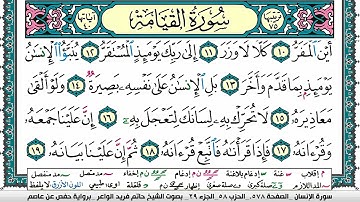 سُورَةُ الْقِيَامَةِ
أَيْنَ الْمَفَرُّ ١٠ كَلَّا لَا وَزَرَ ١١ إِلَىٰ رَبِّكَ يَوْمَئِذٍ الْمُسْتَقَرُّ ١٢ يُنَبَّؤُا الْإِنسَٰنُ
يَوْمَئِذٍ بِمَا قَدَّمَ وَأَخَّرَ ١٣ بَلِ الْإِنسَٰنُ عَلَىٰ نَفْسِهِ بَصِيرَةٌ ١٤ وَلَوْ أَلْقَىٰ
مَعَاذِيرَهُ ١٥ لَا تُحَرِّكْ بِهِ لِسَانَكَ لِتَعْجَلَ بِهِ ١٦ إِنَّ عَلَيْنَا جَمْعَهُ
وَقُرْءَانَهُ ١٧ فَإِذَا قَرَأْنَٰهُ فَاتَّبِعْ قُرْءَانَهُ ١٨ ثُمَّ إِنَّ عَلَيْنَا بَيَانَهُ ١٩
سورة الإنسان - الصفحة ٥٧٨ - الجزء ٢٩ بصوت الشيخ حاتم فريد الواعر - برواية حفص عن عاصم